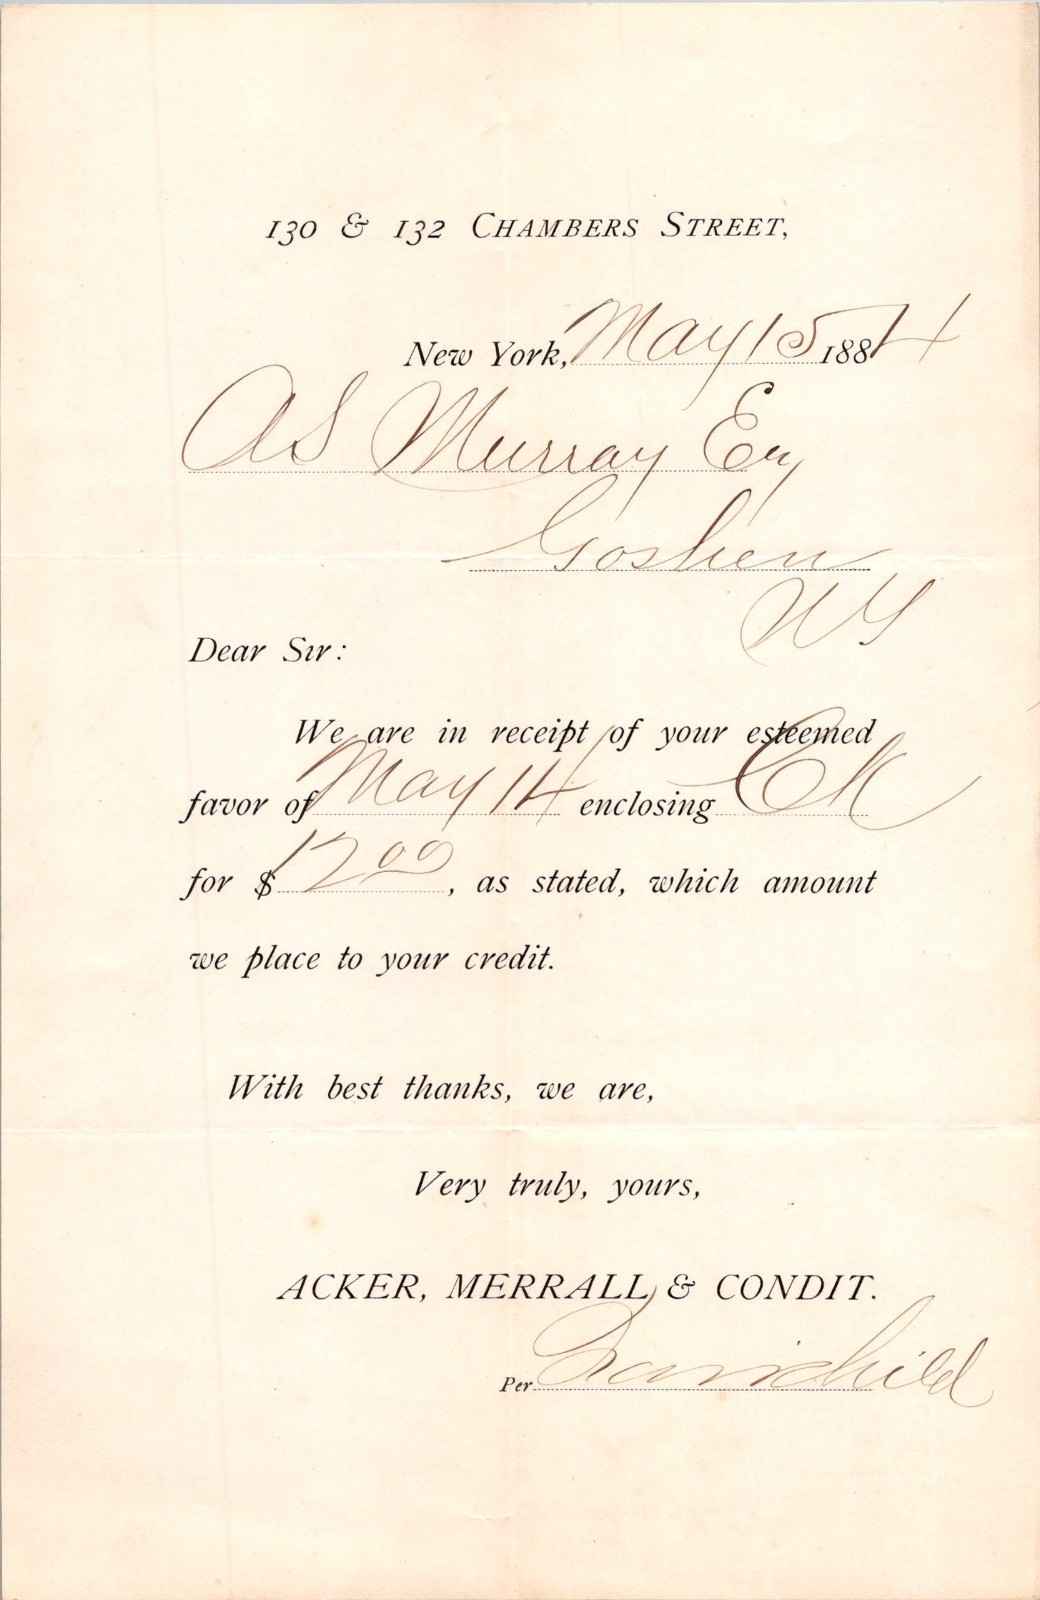 130 & 132 CHAMBERS STREET,
New York, May 15 1884
A S Murray Esq
Goshen
N Y
Dear Sir:
We are in receipt of your esteemed
favor of May 14 enclosing Ck
for $ 12 00, as stated, which amount
we place to your credit.
With best thanks, we are,
Very truly, yours,
ACKER, MERRALL & CONDIT.
Per Fairchild